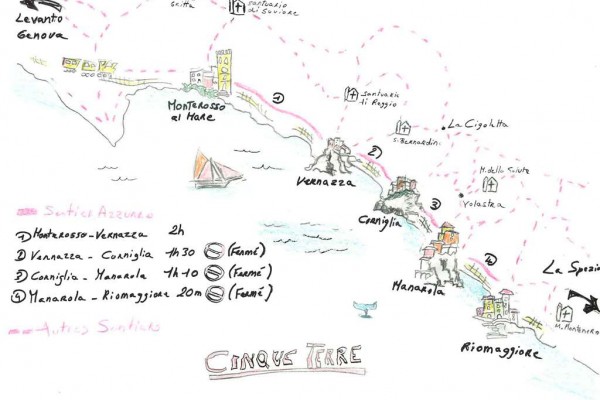 Levanto
Genova
Santuario
di Soviore
Monterosso
al Mare
①
Santuario
di Reggio
La Cigoletta
S. Bernardin
Vernazza
②
M. della Salute
Volastra
Corniglia
③
Manarola
④
La Spezia
M. Montenero
Riomaggiore
Sentier Azzurro
① Monterosso-Vernazza 2h
② Vernazza - Corniglia 1h30 (Fermé)
③ Corniglia - Manarola 1h10 (Fermé)
④ Manarola - Riomaggiore 20m (Fermé)
Autres Sentiers
CINQUE TERRE